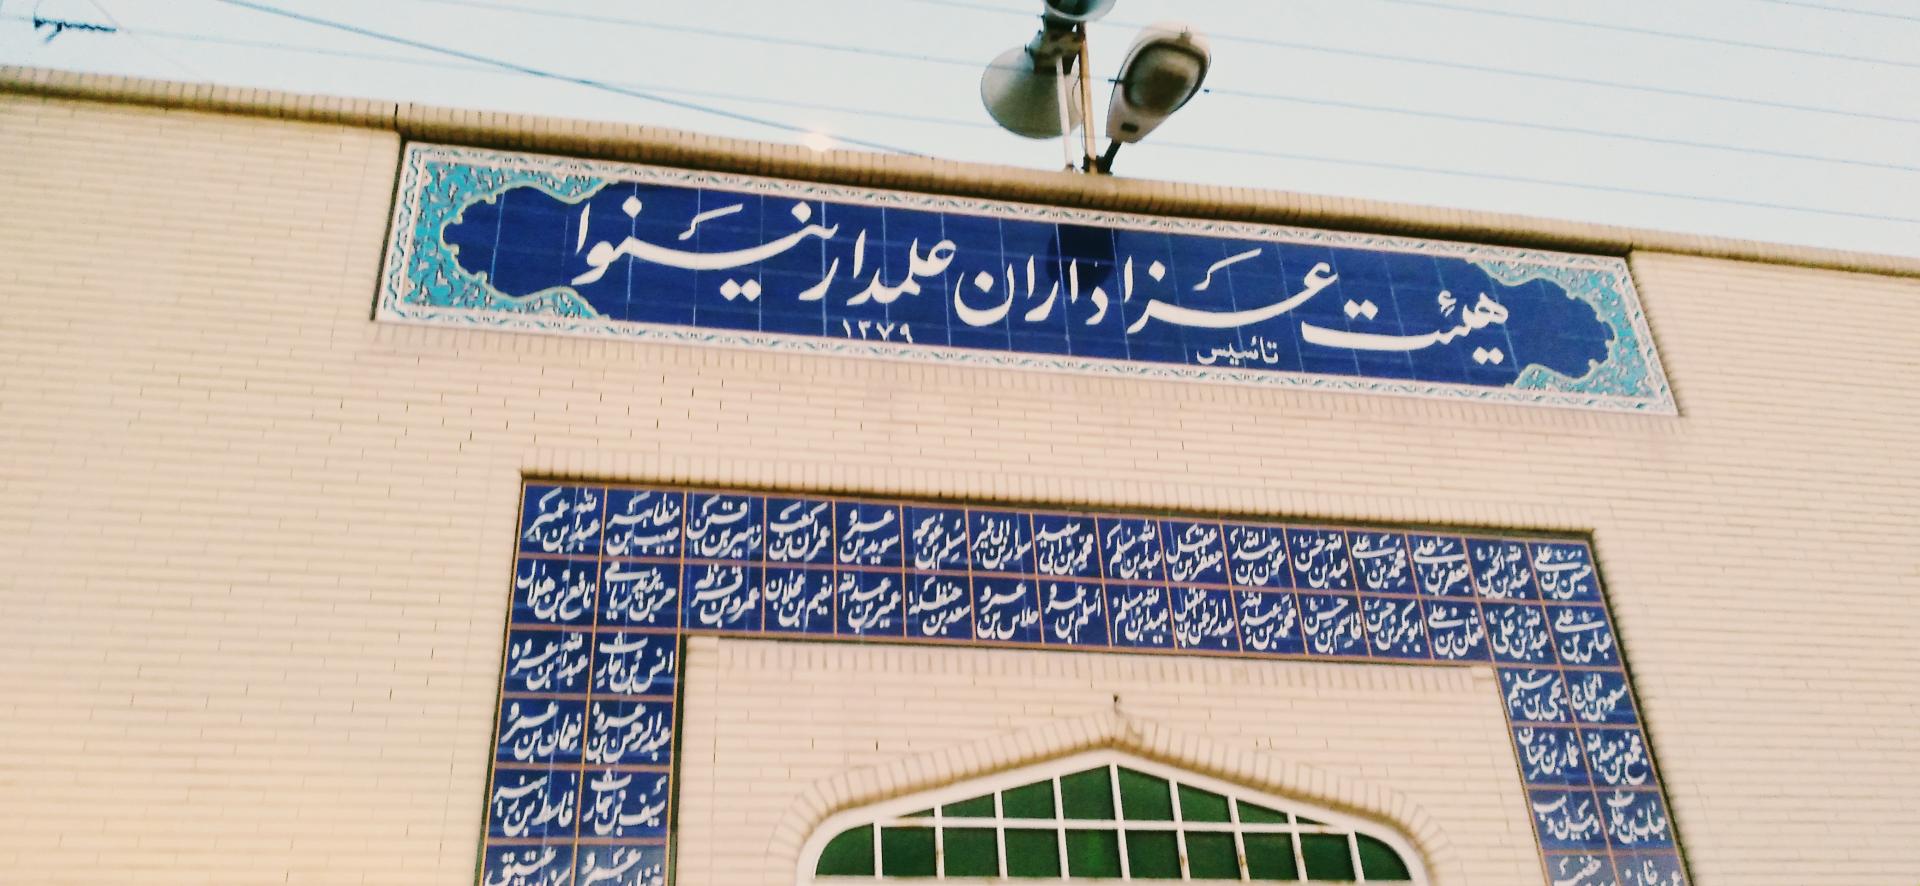 هیئت عزاداران علمدار نینوا
تأسیس ۱۳۷۹
حسین بن علی عبدالله بن الحسن جعفر بن علی محمد بن علی عبدالله بن حسن عون بن عبدالله جعفر بن عقیل عبدالله بن مسلم محمد بن ابی سعید سوار بن ابی عمیر مسلم بن عوسجه سوید بن عمرو عمران بن کعب زهیر بن قین حبیب بن مظاهر عبدالله بن عمیر
عباس بن علی عبدالله بن علی عثمان بن علی ابوبکر بن حسن قاسم بن حسن محمد بن عبدالله عبدالرحمن بن عقیل عبیدالله بن مسلم اسلم بن عمرو حلاس بن عمرو سعد بن حنظله عمیر بن عبدالله نعیم بن عجلان عمرو بن قرظه حر بن یزید ریاحی نافع بن هلال
مسعود بن الحجاج یحیی بن سلیم
انس بن حارث عبدالله بن عروه
مجمع بن عبدالله عمار بن حسان
عبدالرحمن بن عروه نعمان بن عمرو
حباب بن حارث وهب بن وهب
سیف بن حارث قاسط بن زهیر